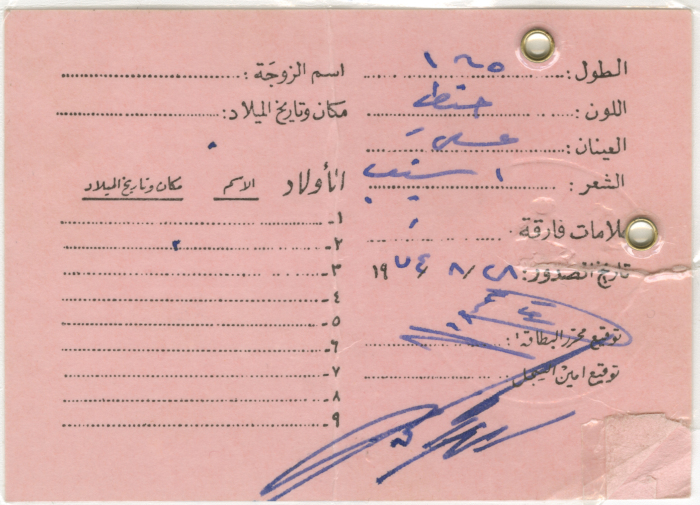 الطول: ١٦٥
اللون: حنطي
العينان: عسلي
الشعر: اشيب
علامات فارقة:
تاريخ الصدور: ٢٨/٨/١٩٧٤
توقيع محرّر البطاقة:
توقيع امين السجل
اسم الزوجَة:
مكان وتاريخ الميلاد:
الأولاد الاسم مكان وتاريخ الميلاد
١-
٢-
٣-
٤-
٥-
٦-
٧-
٨-
٩-